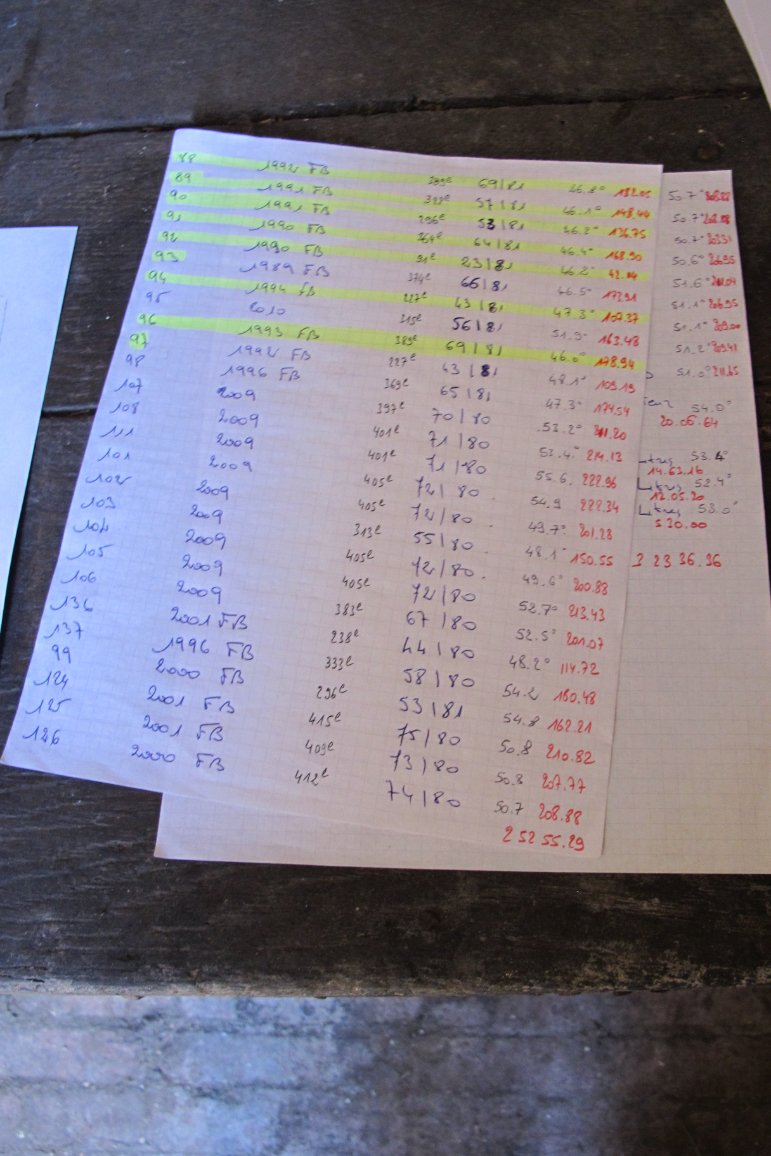 88 1992 FB 389ᵉ 69/81 46.8°
89 1991 FB 57/81 46.1° 148.44
90 1991 FB 296ᵉ 53/81 46.2° 136.75
91 1990 FB 264ᵉ 64/81 46.4° 168.90
92 1990 FB 91ᵉ 23/81 46.2° 42.04
93 1989 FB 374ᵉ 66/81 46.5° 173.91
94 1994 FB 227ᵉ 43/81 47.3° 107.37
95 2010 315ᵉ 56/81 51.9° 163.48
96 1993 FB 389ᵉ 69/81 46.0° 178.94
97 1992 FB 227ᵉ 43/81 48.1° 109.19
98 1996 FB 369ᵉ 65/81 47.3° 174.54
107 2009 397ᵉ 70/80 53.2° 211.20
108 2009 401ᵉ 71/80 53.4° 214.13
111 2009 401ᵉ 71/80 55.6 222.96
101 2009 405ᵉ 72/80 54.9 222.34
102 2009 405ᵉ 72/80 49.7° 201.28
103 2009 313ᵉ 55/80 48.1° 150.55
104 2009 405ᵉ 72/80 49.6° 200.88
105 2009 405ᵉ 72/80 52.7° 213.43
106 2009 383ᵉ 67/80 52.5° 201.07
136 2001 FB 238ᵉ 44/80 48.2° 114.72
137 1996 FB 333ᵉ 58/80 54.2 180.48
99 2000 FB 296ᵉ 53/81 54.8 162.21
124 2001 FB 415ᵉ 75/80 50.8 210.82
125 2001 FB 409ᵉ 73/80 50.8 207.77
126 2000 FB 412ᵉ 74/80 50.7 208.88
2 52 55.29
50.7°
50.7°
50.7°
50.6° 206.95
51.6°
51.1° 206.95
51.1° 209.00
51.2° 209.41
51.0° 211.65
54.0°
20.05.64
53.4°
14.63.16
52.4°
12.05.20
53.0°
5 30.00
3 23 36.36